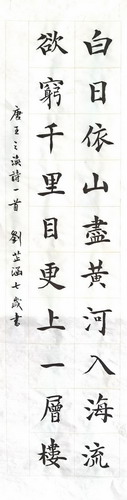 白日依山盡黃河入海流
欲窮千里目更上一層樓
唐王之渙詩一首 劉芷涵七歲書